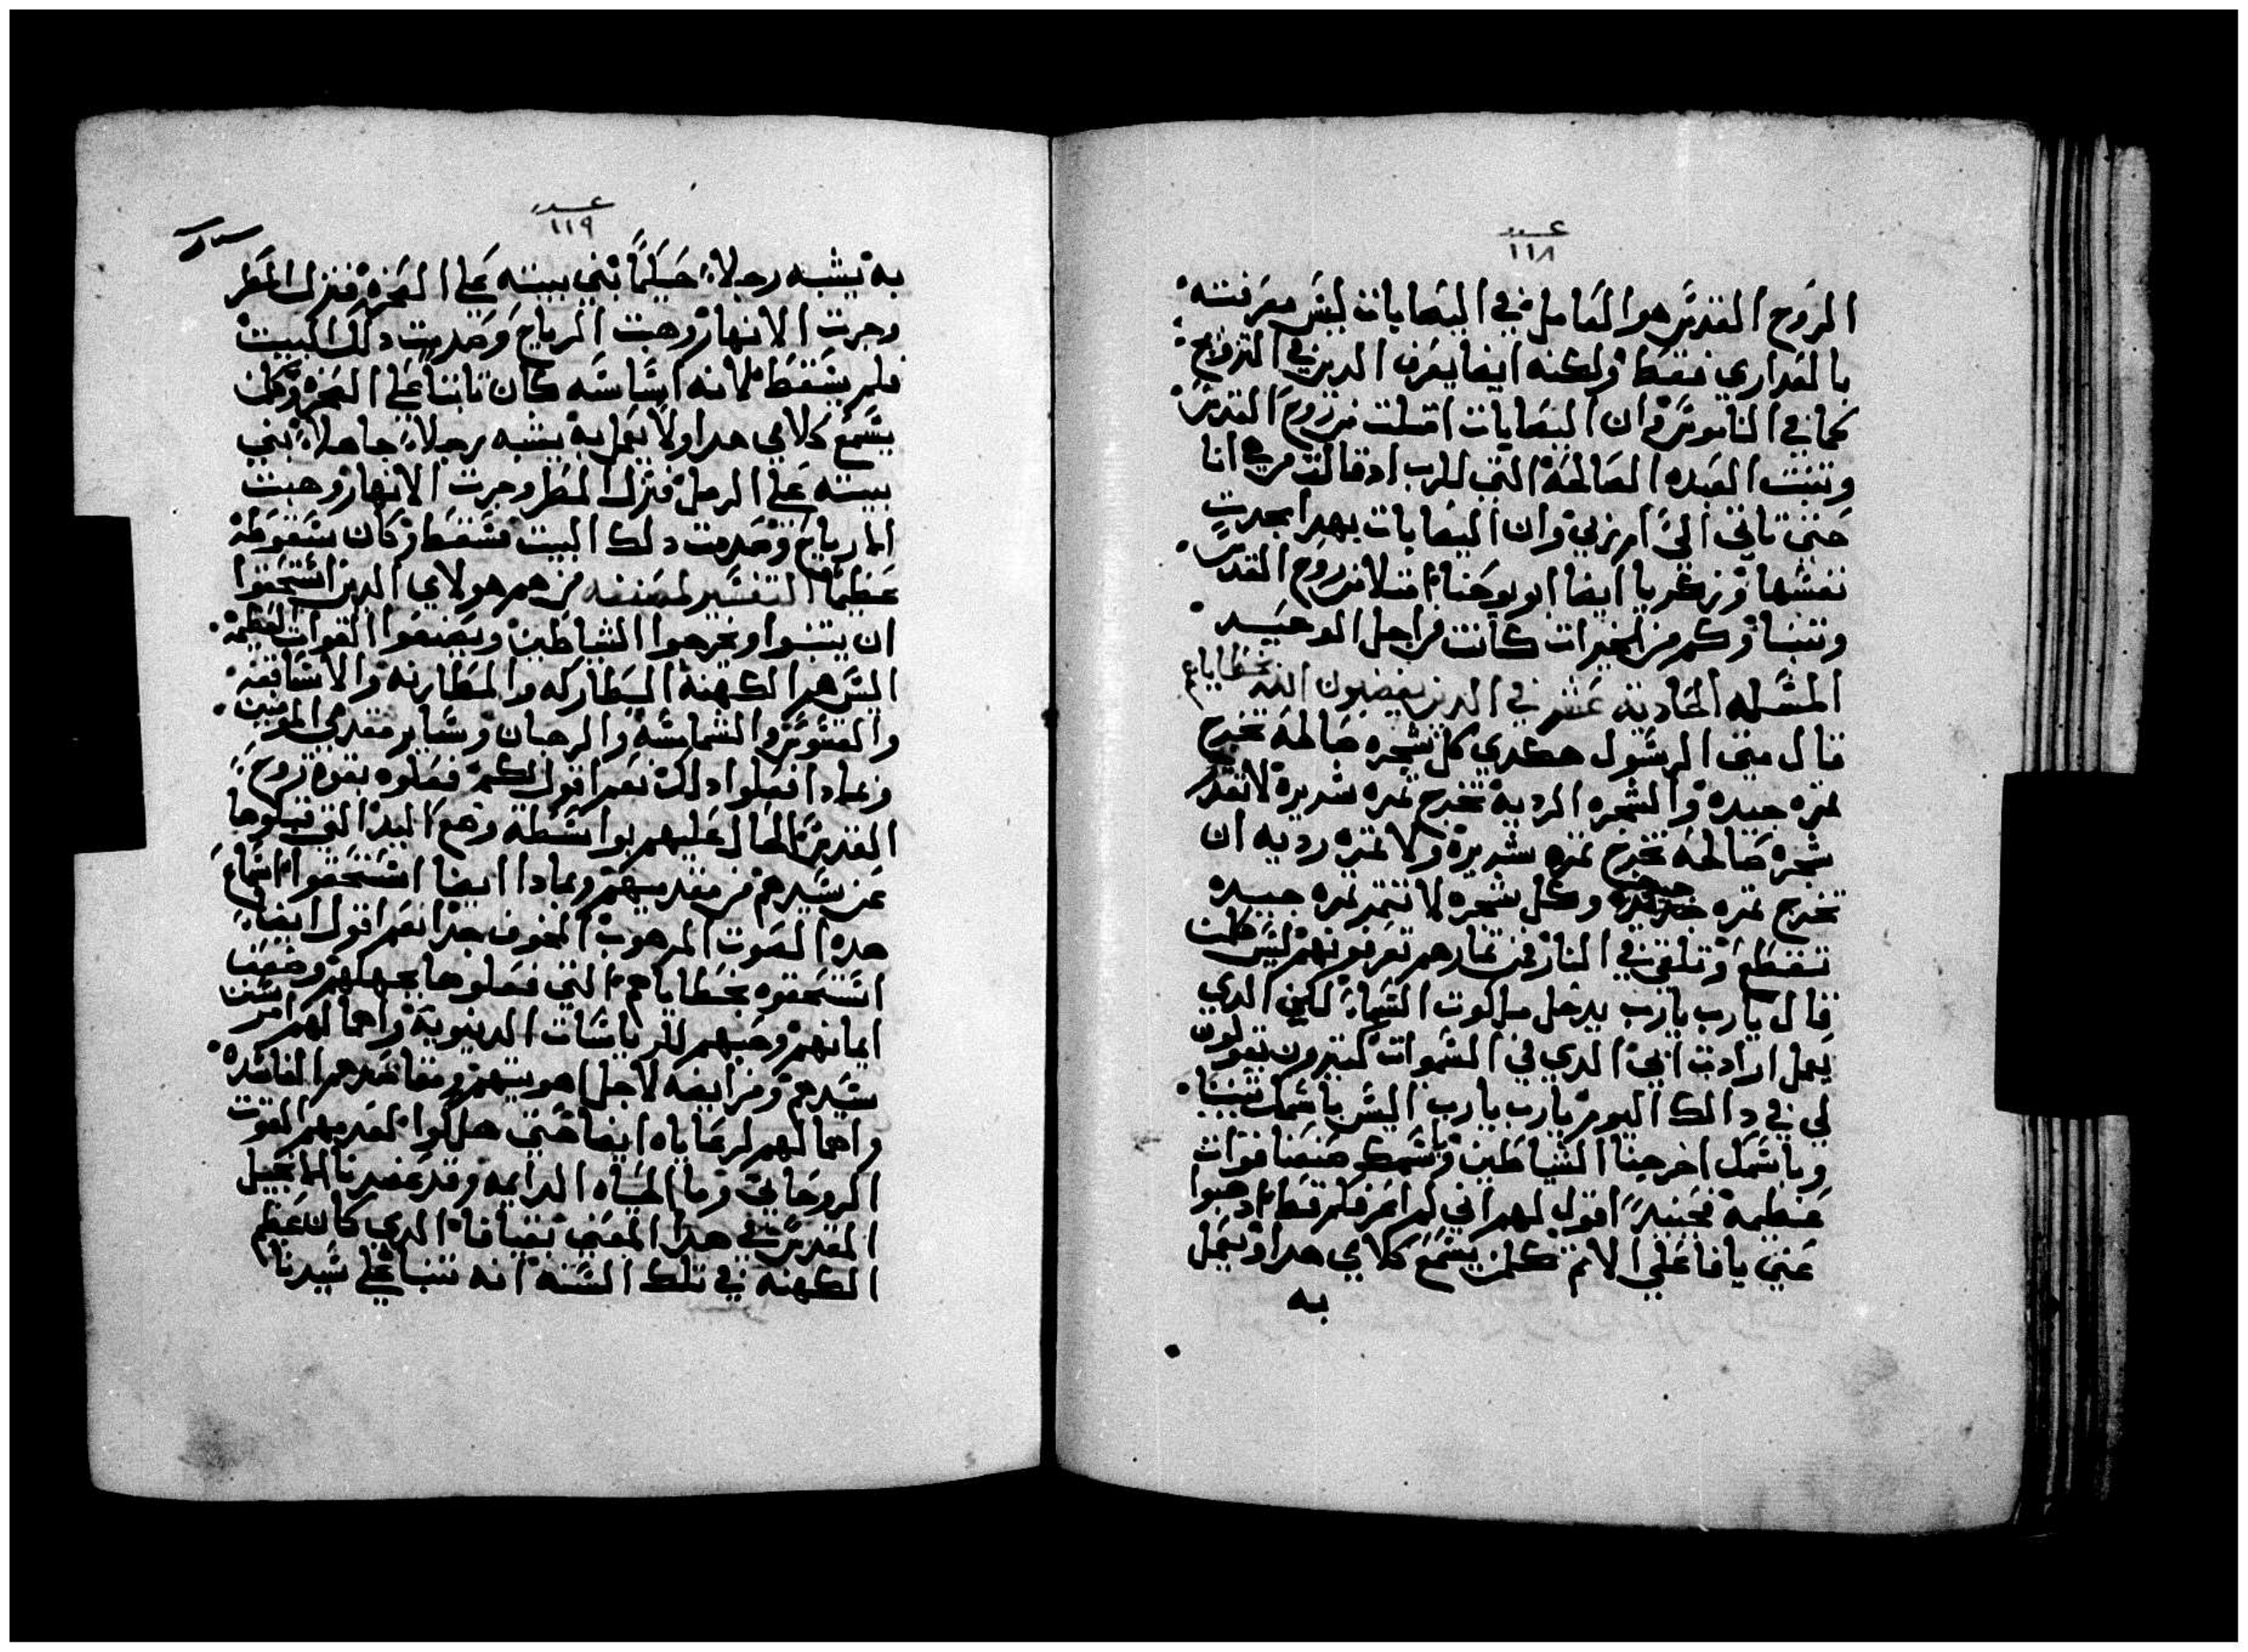 عدد
١١٨
الروح القدس هو العامل في البصابات ليس معرفته
بالعداري فقط ولكنه ايضا يعرف الدين في التزويج
كما في الناموس وان اليصابات امتلت من روح القدس
وتنبت العبده الصالحة التي للرب اد قالت من هي انا
حتى تاتي اليَّ ام ربي وان اليصابات بهدا بحدت
نفسها وزخريا ايضا ابو يوحنا امتلا من روح القدس
وتنبا وكم من الخيرات كانت من اجل الوحيد
المسله الحادية عشر في الدين يغضبون الله بخطاياهم
قال متى الرسول هكدي كل شجره صالحة تخرج
تمره جيدة والشجره الردية تخرج تمره شريرة لا تقدر
شجره صالحة تخرج تمره شريرة ولا تمره رديه ان
تخرج تمره جيده وكل شجره لا تتمر تمره جيده
تقطع وتلقى في النار فمن تمارهم تعرفونهم ليس كلمن
قال يا رب يا رب يدخل ملكوت السماء لكن الدي
يعمل ارادت ابي الدي في السموات كتيرون يقولون
لي في دالك اليوم يا رب يا رب اليس باسمك تنبينا
وباسمك اخرجنا الشياطين وباسمك صنعنا قوات
عظيمة فحينيدً اقول لهم اني لم اعرفكم قط ادهبوا
عني يا فاعلي الاتم كلمن يسمع كلامي هدا ويعمل
به
عدد
١١٩
به يشبه رجلاً حكيماً بني بيته على الصخره فنزل المطر
وجرت الانهار وهبت الرياح وصدمت دلك البيت
فلم يسقط لانه اساسه كان تابتا على الصخره وكلمن
يسمع كلامي هدا ولا يعمل به يشبه رجلاً جاهلاً بني
بيته على الرمل فنزل المطر وجرت الانهار وهبت
الرياح وصدمت دلك البيت فسقط وكان سقوطه
عظيماً التفسير لمصنفه من هم هولاي الدين استحقوا
ان يتنبوا ويخرجوا الشياطين ويصنعوا القوات العظيمة
اليس هم الكهنة البطاركه والمطارنه والاساقفه
والقسوس والشمامسة والرهبان وساير مقدمي المومنين
وعمادا فعلوا دلك نعم اقول لكم فعلوه بقوة روح
القدس الحال عليهم بواسطة وضع اليد التي قبلوها
عن سيدهم من مقدميهم وبمادا ايضا استحقوا استماع
هده الصوت المرهوب المخوف جدا نعم اقول ايضا
استحقوه بخطاياهم التي فعلوها بجهلهم وضعف
ايمانهم وحبهم للرياسات الدينوية واهمالهم امر سنن
سيدهم وفرايضه لاجل اهويتهم ومقاصدهم الفاسدة
واهمالهم لرعاياه ايضا حتى هلكوا لعدمهم القوت
الروحاني وما الحياه الدايمه وقد عضدنا الانجيل
المقدس في هدا المعنى بقيافا الدي كان عظيم
الكهنه في تلك السنه انه تنبا على سيدنا